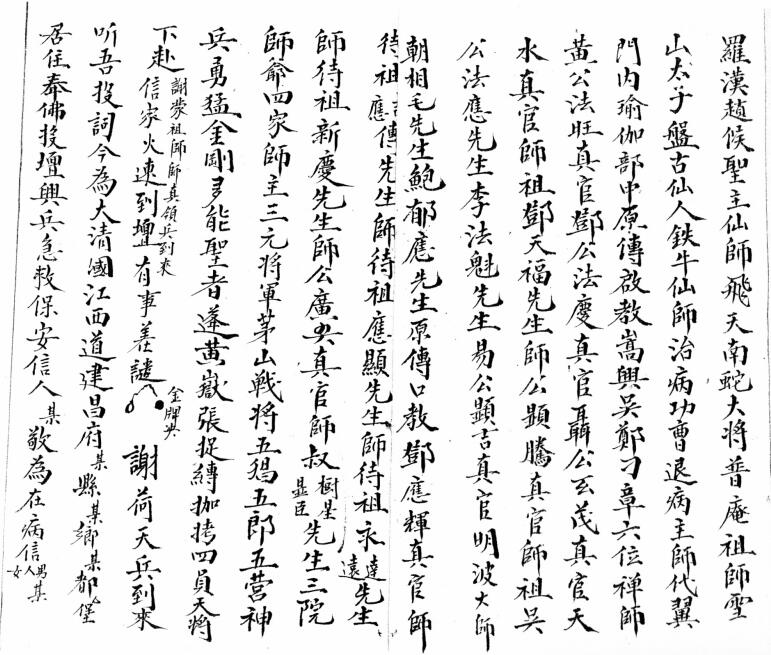 羅漢趙候聖主仙師飛天南蛇大将普庵祖師雪
山太子盤古仙人鉄牛仙師治病功曹退病主師代翼
門内瑜伽部中原傳啟教嵩興吳鄭刁章六位禅師
黄公法旺真官鄧公法慶真官聶公玄茂真官天
水真官師祖鄧天福先生師公顕騰真官師祖吳
公法應先生李法魁先生易公顕吉真官明波大師
朝相毛先生鮑郁應先生原傳口教鄧應輝真官師
待祖應吉傳先生師待祖應顯先生師待祖永達遠先生
師待祖新慶先生師公廣興真官師叔樹星昱臣先生三院
師爺四家師主三元将軍茅山戦将五猖五郎五营神
兵勇猛金剛多能聖者蓬黄嶽張捉縛枷拷四員天将
下赴謝蒙祖師師真領兵到來信家火速到壇有事差謴金牌奌謝荷天兵到來
听吾投詞今為大清國江西道建昌府某縣某鄉某都堡
居住奉佛投壇興兵急救保安信人某敬為在病信男人女某